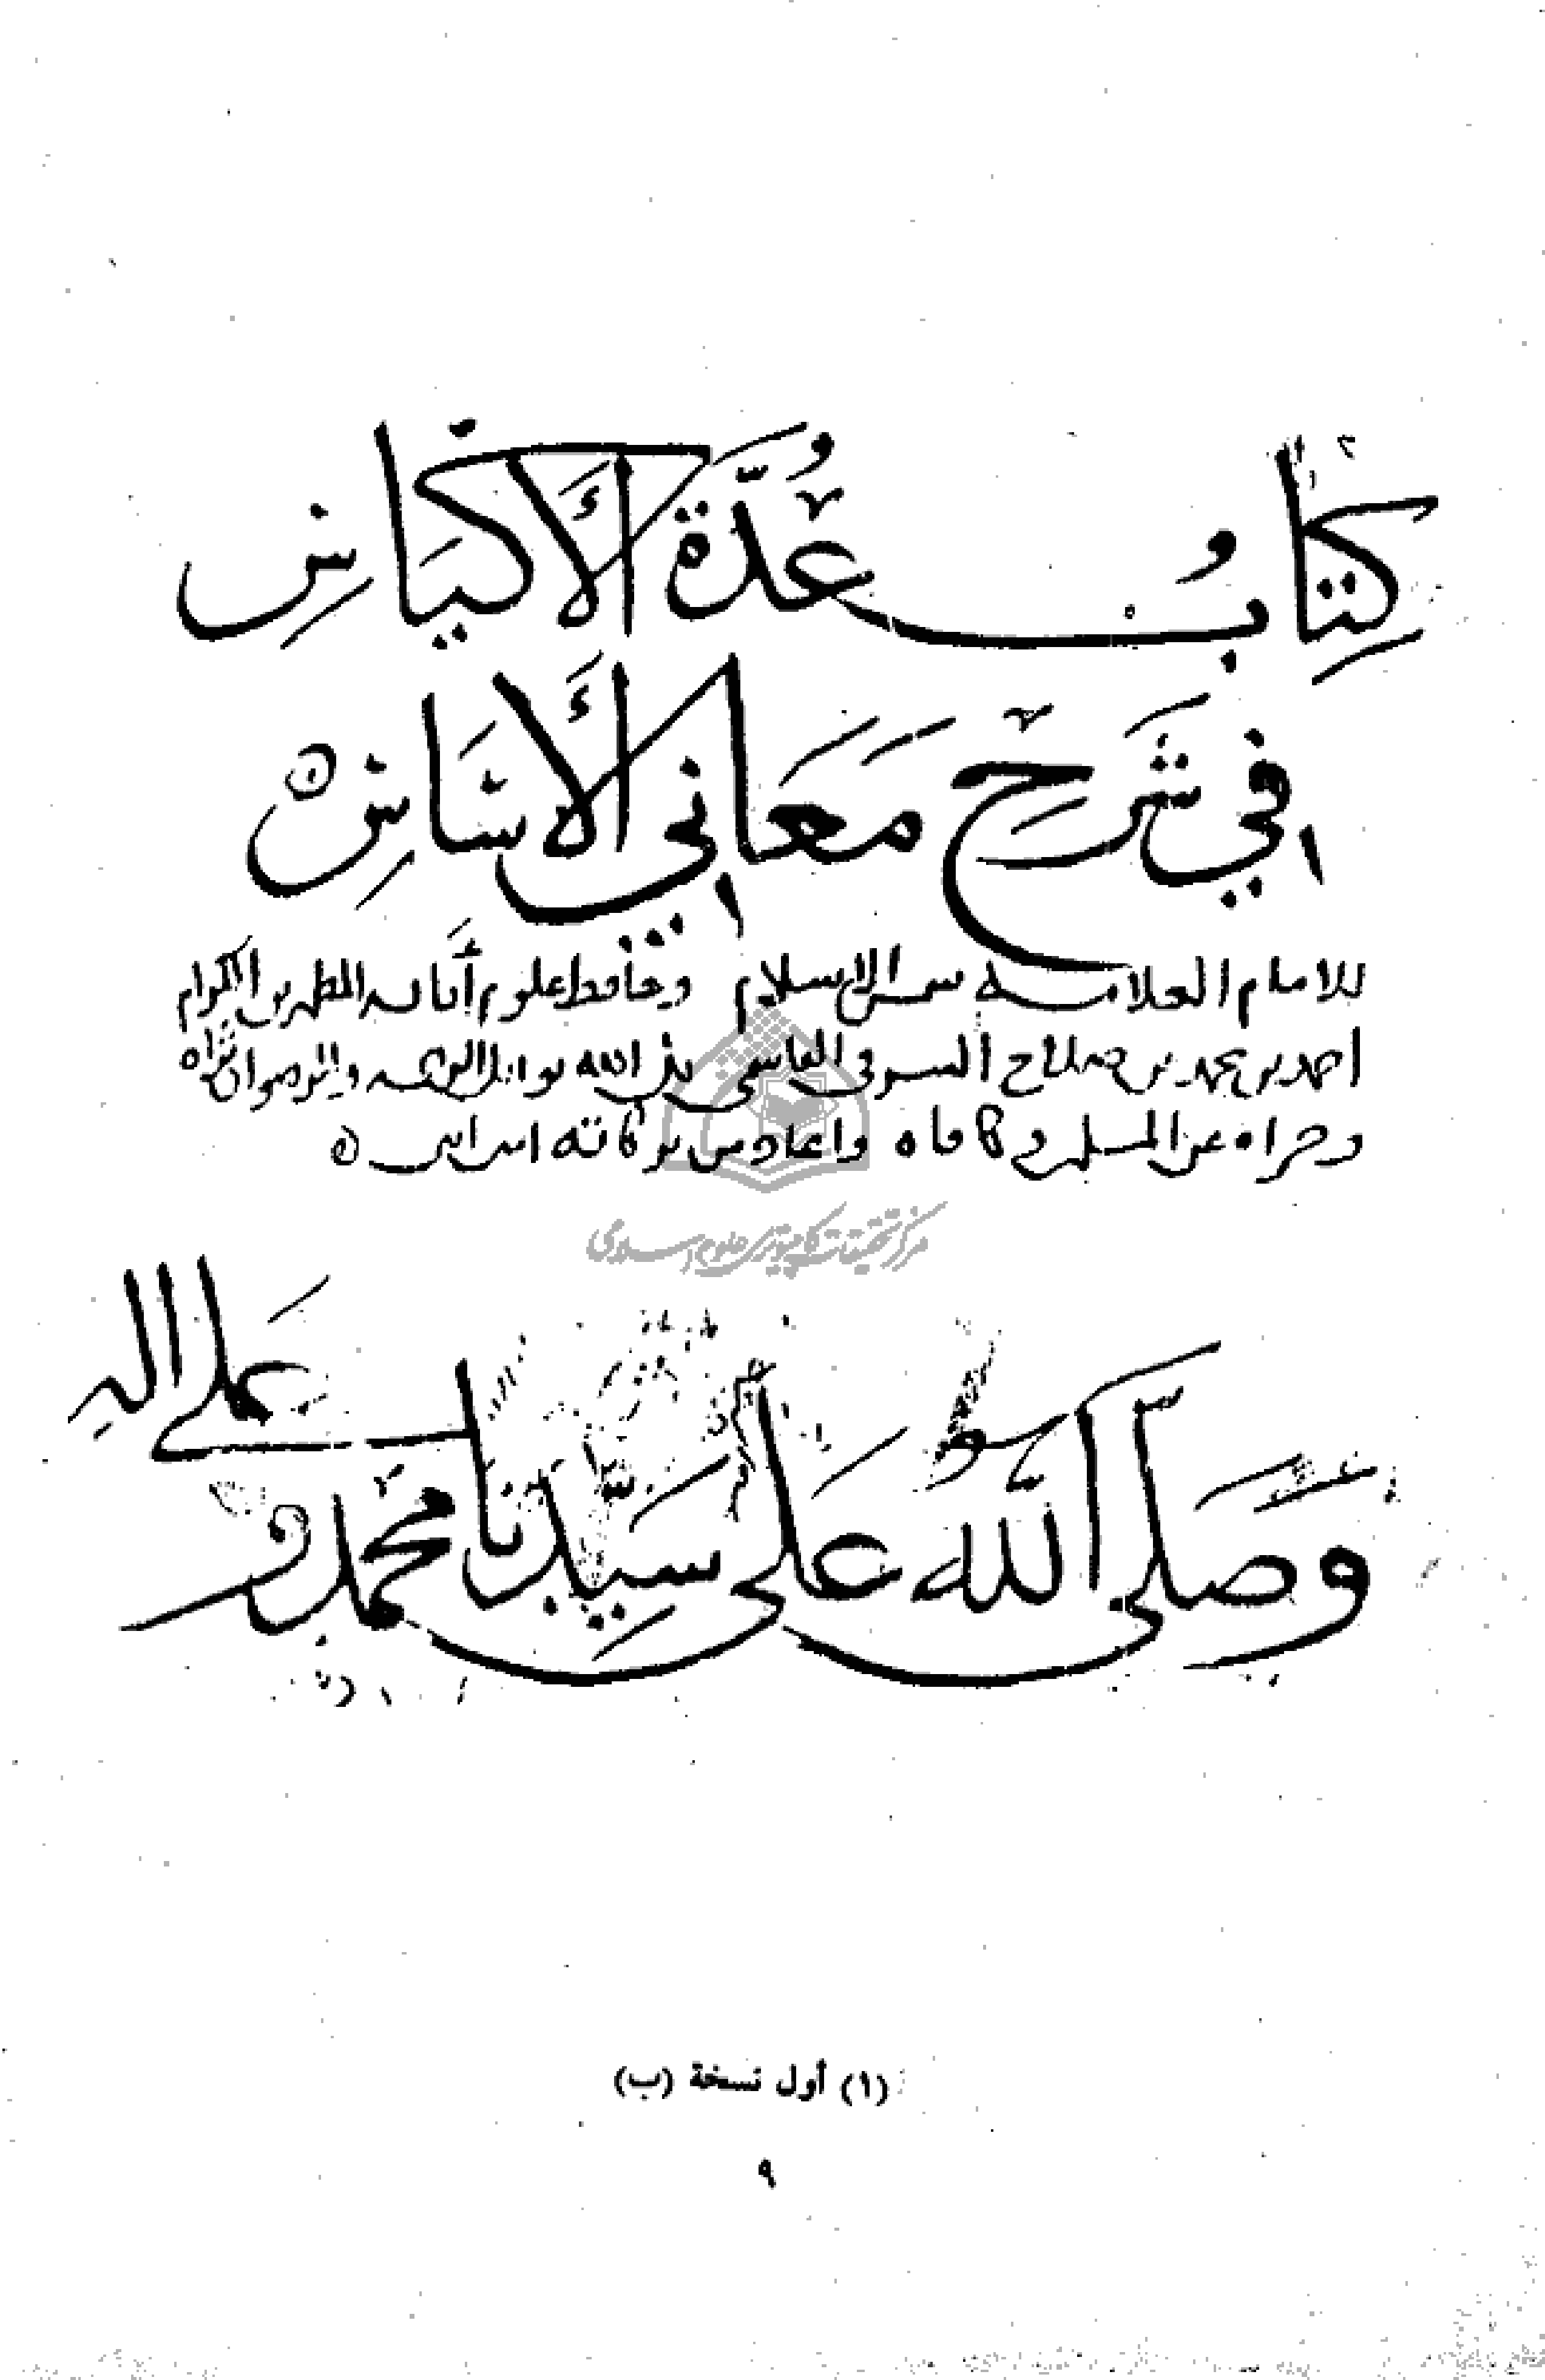 كِتَابُ عُدَّة الأَكْيَاسِ
في شَرْحِ مَعَاني الأَسَاسِ
للامام العلامه شمس الاسلام وحافظ علوم أبائه المطهرين الكرام
احمد بن محمد بن صلاح الشرفي القاسمي الله بوابل الرحمه والرضوان ثراه
وجزاه عن المسلمين وكافاه واعاد من بركاته امين امين
مركز تحقيقات كامپيوتری علوم اسلامی
وَصَلَّى اللّه عَلَى سَيِّدنا محمد و
عَلى اله
(١) أول نسخة (ب)
٩